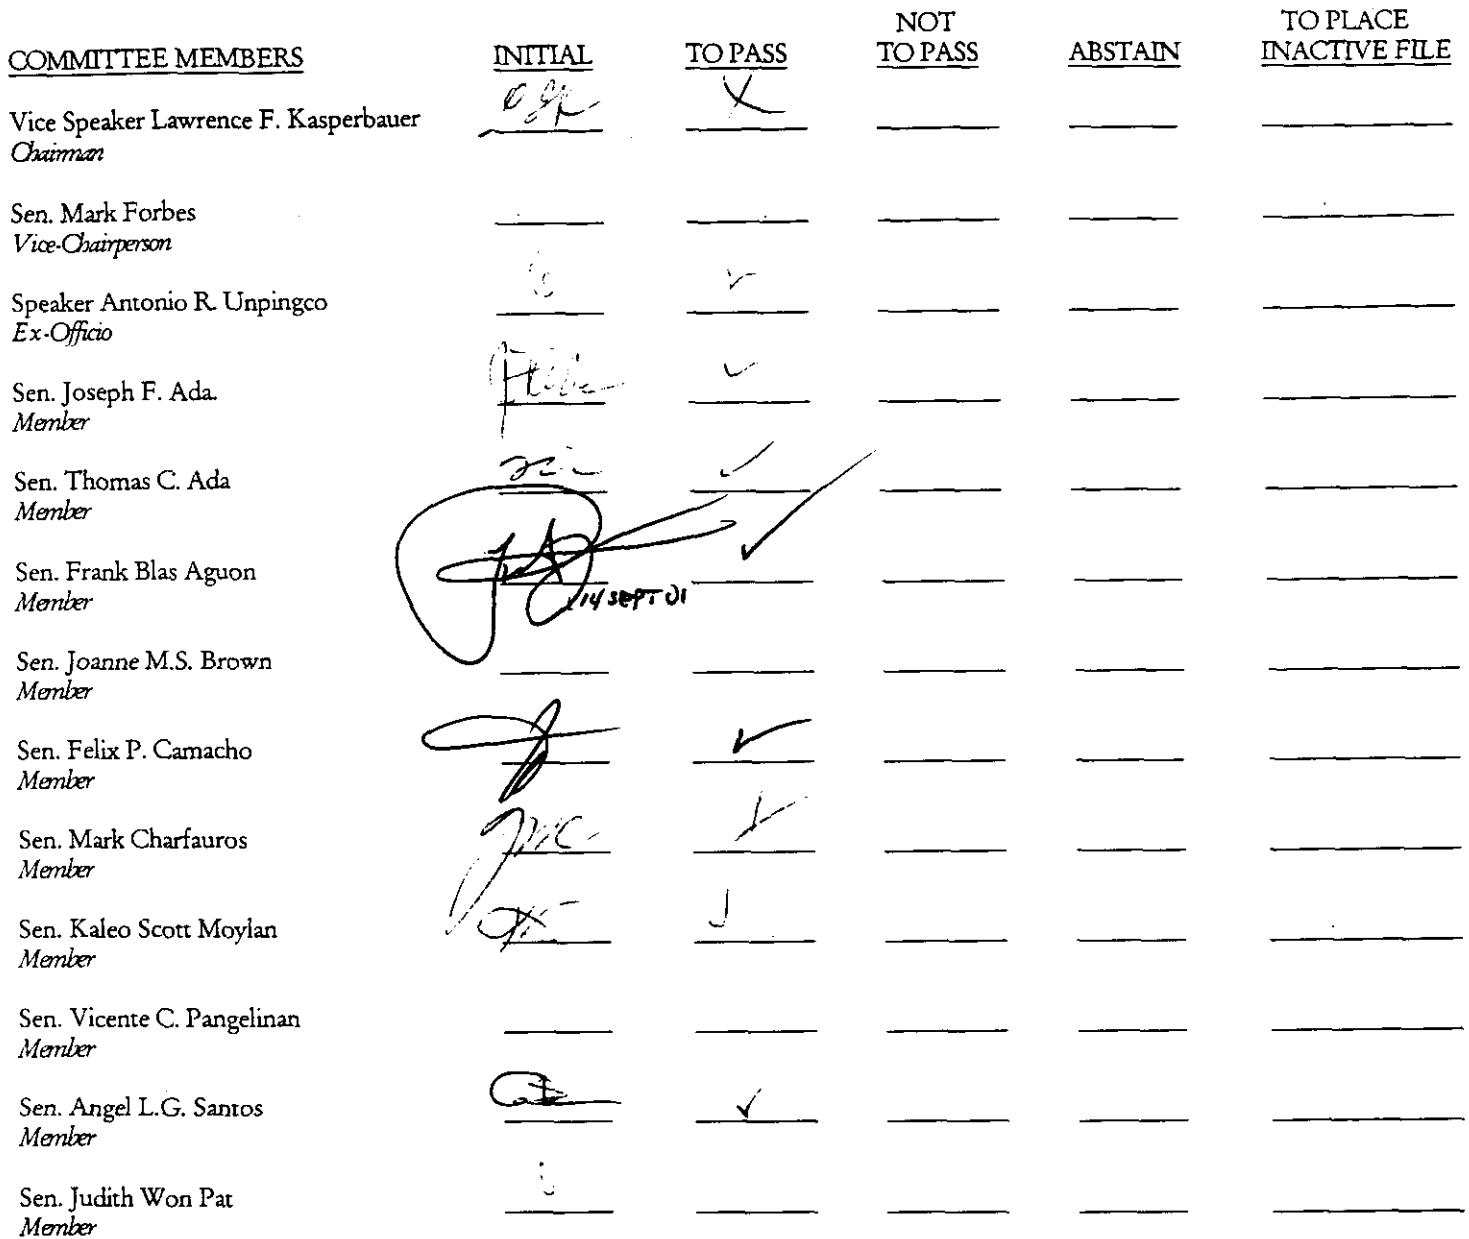 NOT TO PLACE
COMMITTEE MEMBERS INITIAL TO PASS TO PASS ABSTAIN INACTIVE FILE
Vice Speaker Lawrence F. Kasperbauer
Chairman
Sen. Mark Forbes
Vice-Chairperson
Speaker Antonio R. Unpingco
Ex-Officio
Sen. Joseph F. Ada.
Member
Sen. Thomas C. Ada
Member
Sen. Frank Blas Aguon
14 SEPT 01
Member
Sen. Joanne M.S. Brown
Member
Sen. Felix P. Camacho
Member
Sen. Mark Charfauros
Member
Sen. Kaleo Scott Moylan
Member
Sen. Vicente C. Pangelinan
Member
Sen. Angel L.G. Santos
Member
Sen. Judith Won Pat
Member